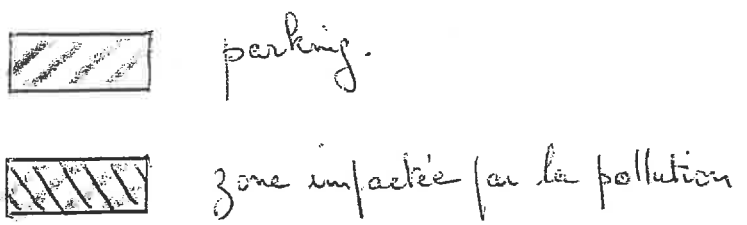 parking.
zone impactée par la pollution